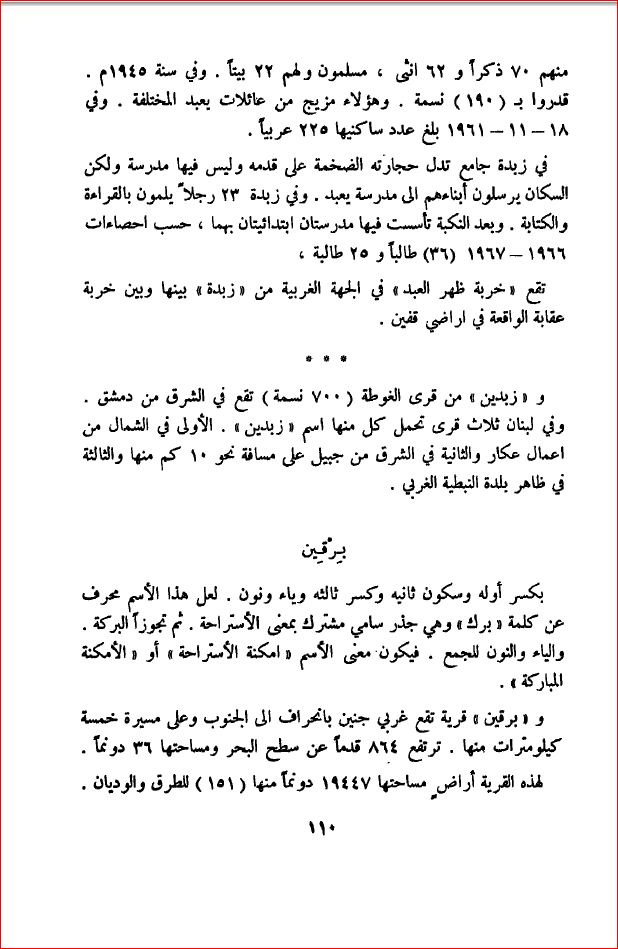 منهم ٧٠ ذكراً و ٦٢ انثى ، مسلمون ولهم ٢٢ بيتاً . وفي سنة ١٩٤٥م .
قدروا بـ (١٩٠) نسمة . وهؤلاء مزيج من عائلات يعبد المختلفة . وفي
١٨ – ١١ – ١٩٦١ بلغ عدد ساكنيها ٢٢٥ عربياً .
في زبدة جامع تدل حجارته الضخمة على قدمه وليس فيها مدرسة ولكن
السكان يرسلون أبناءهم الى مدرسة يعبد . وفي زبدة ٢٣ رجلاً يلمون بالقراءة
والكتابة . وبعد النكبة تأسست فيها مدرستان ابتدائيتان بهما ، حسب احصاءات
١٩٦٦ – ١٩٦٧ (٣٦) طالباً و ٢٥ طالبة ،
تقع «خربة ظهر العبد» في الجهة الغربية من «زبدة» بينها وبين خربة
عقابة الواقعة في اراضي قفين .
* * *
و «زبدين» من قرى الغوطة (٧٠٠ نسمة) تقع في الشرق من دمشق .
وفي لبنان ثلاث قرى تحمل كل منها اسم «زبدين» . الأولى في الشمال من
اعمال عكار والثانية في الشرق من جبيل على مسافة نحو ١٠ كم منها والثالثة
في ظاهر بلدة النبطية الغربي .
بِرْقِين
بكسر أوله وسكون ثانيه وكسر ثالثه وياء ونون . لعل هذا الأسم محرف
عن كلمة «برك» وهي جذر سامي مشترك بمعنى الأستراحة . ثم تجوزاً البركة .
والياء والنون للجمع . فيكون معنى الأسم «امكنة الأستراحة» أو «الأمكنة
المباركة» .
و «برقين» قرية تقع غربي جنين بانحراف الى الجنوب وعلى مسيرة خمسة
كيلومترات منها . ترتفع ٨٦٤ قدماً عن سطح البحر ومساحتها ٣٦ دونماً .
لهذه القرية أراضٍ مساحتها ١٩٤٤٧ دونماً منها (١٥١) للطرق والوديان .
١١٠